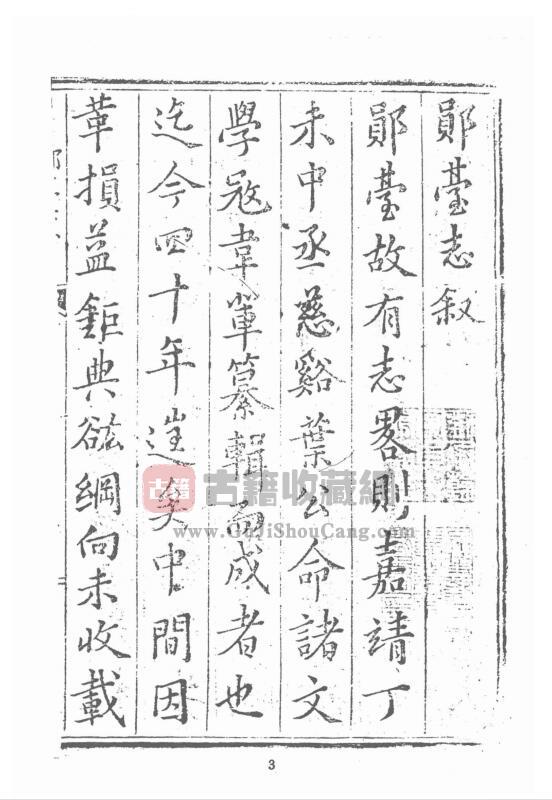 鄖臺志叙
鄖臺故有志畧則嘉靖丁
未中丞慈谿葉公命諸文
學
迄今四十年
革損益鉅典
纂輯而成者也
矣中間因
綱向未收載
古籍
古籍收藏網
www.GuJiShouCang.com
3